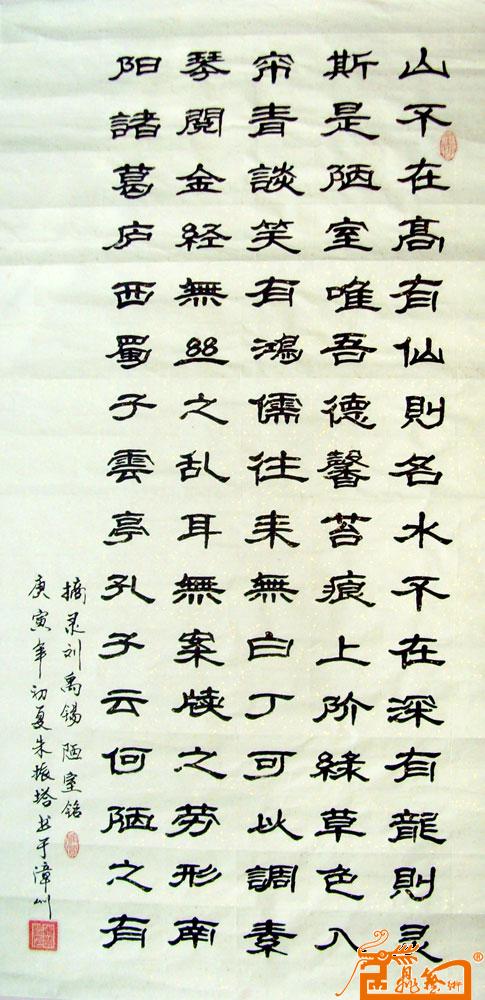 山不在高有仙則名水不在深有龍則灵
斯是陋室唯吾德馨苔痕上阶綠草色入
帘青談笑有鴻儒往来無白丁可以調素
琴閱金经無丝之乱耳無案牍之劳形南
阳諸葛庐西蜀子雲亭孔子云何陋之有
摘录刘禹锡陋室铭
庚寅年初夏朱振塔书于漳州